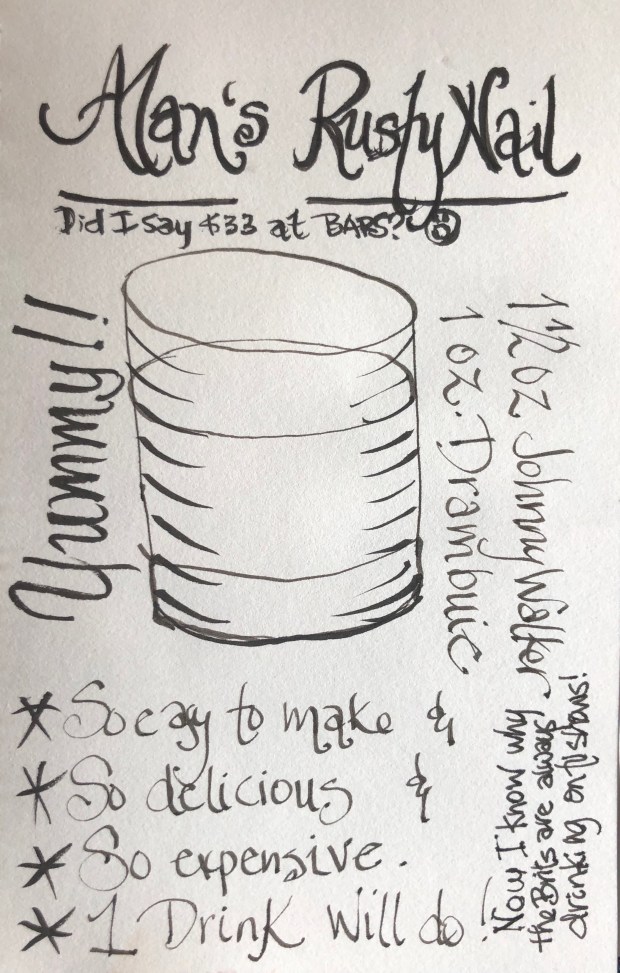 Alan's Rusty Nail
Did I say $33 at BARS?
Yummy!!
1 1/2 oz Johnny Walker
1 oz. Drambuie
* So easy to make &
* So delicious &
* So expensive.
* 1 Drink Will do!
Now I know why
the Brits are always
drinking on tv shows!